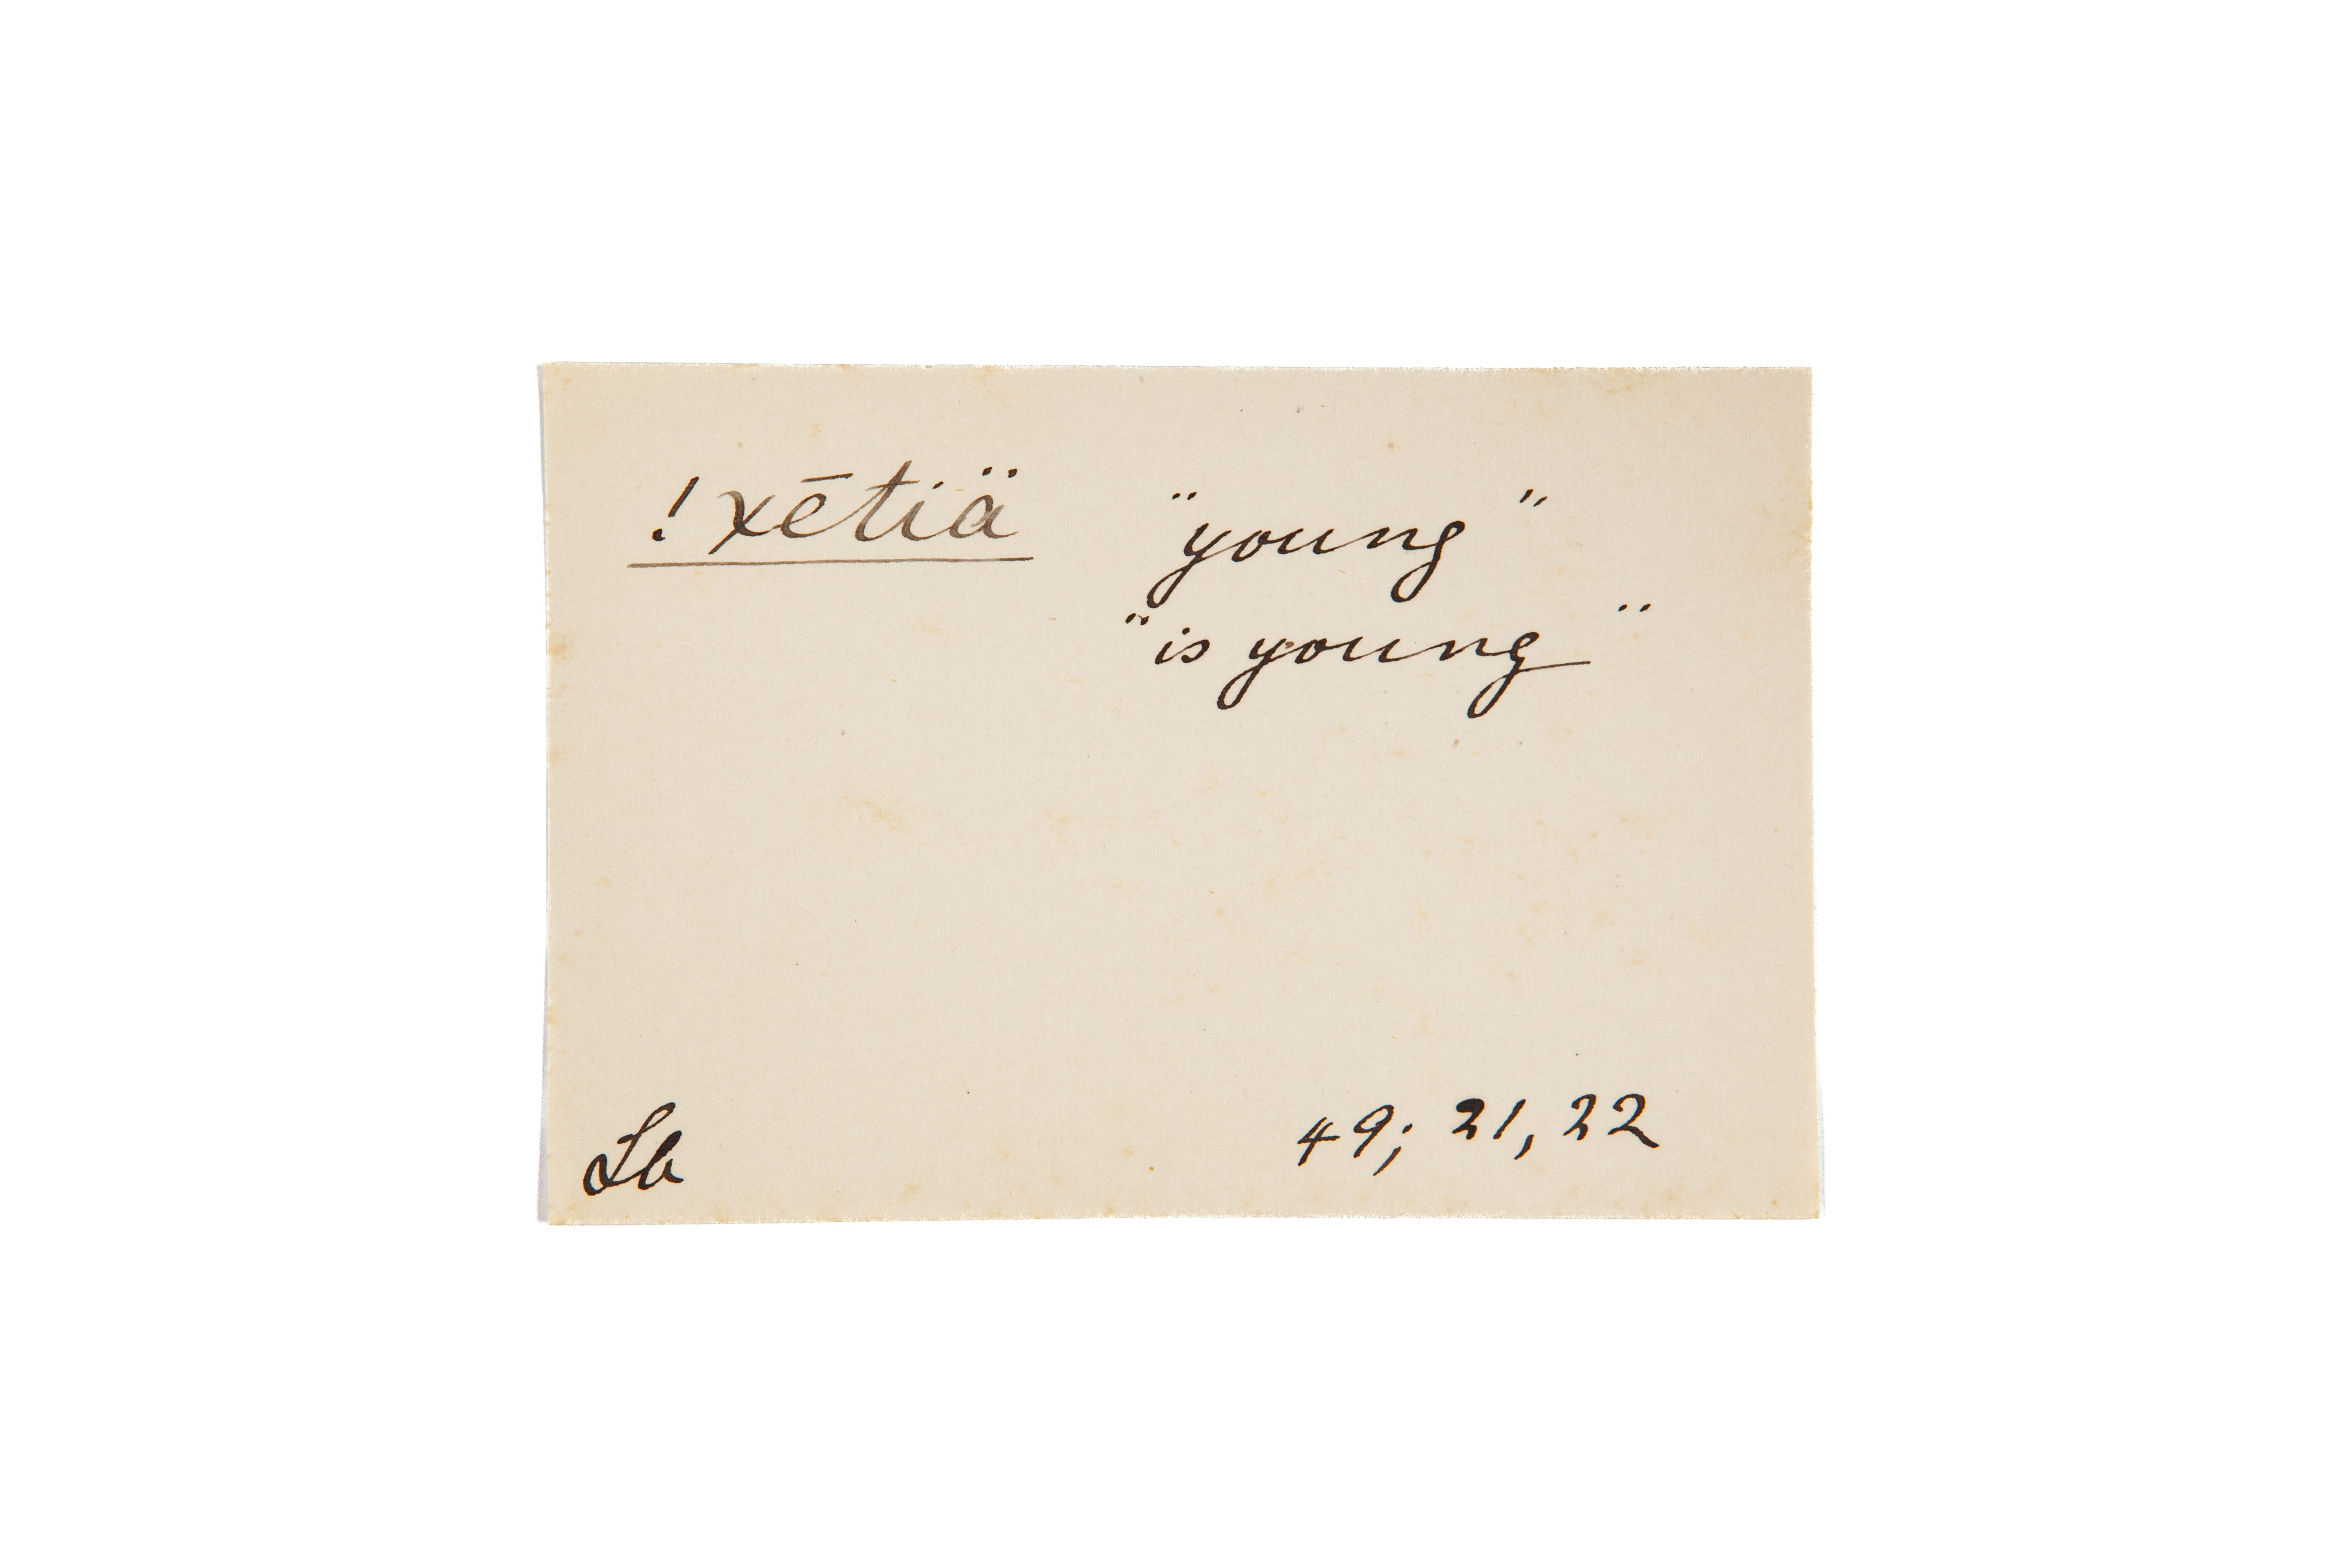 !xētiä "young"
"is young"
Lb 49; 21, 22